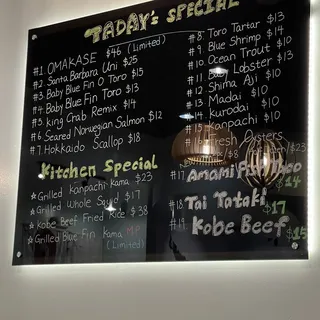 TADAY's SPECIAL
#1. OMAKASE $46 (Limited)
#2. Santa Barbara Uni $25
#3. Baby Blue Fin O Toro $15
#4. Baby Blue Fin Toro $13
#5. king Crab Remix $14
#6 Seared Norwegian Salmon $12
#7 Hokkaido Scallop $18
Kitchen Special
☆ Grilled Kanpachi Kama $23
☆ Grilled Whole Squid $17
☆ Kobe Beef Fried Rice $38
☆ Grilled Blue Fin Kama MP
(Limited)
#8. Toro Tartar $13
#9. Blue Shrimp $14
#10. Ocean Trout $10
#11. Lobster $13
#12. Shima Aji $10
#13. Madai $10
#14. Kurodai $10
#15. Kanpachi $10
Fresh Oysters
/$8 /$23
#17 Amami
$14
#18 Tai Tataki
$17
#19 Kobe Beef
$15